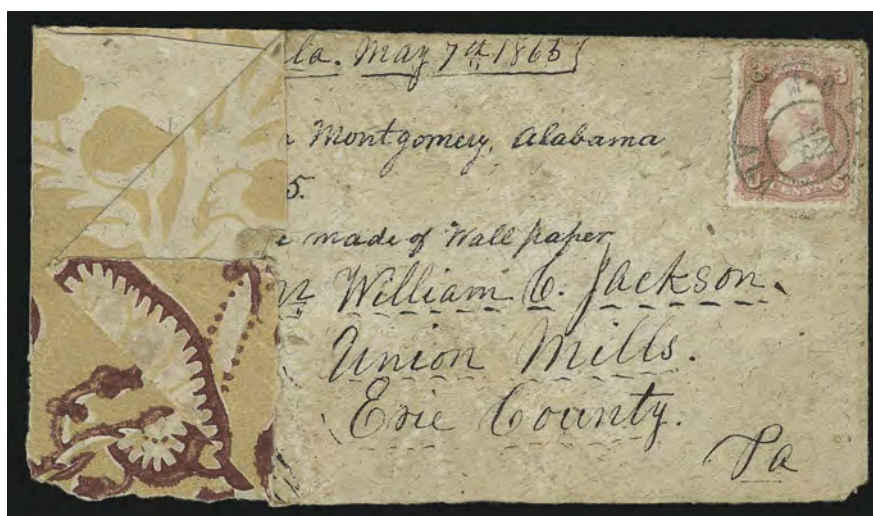 la. May 7th 1865
Montgomery, Alabama
5.
e made of Wall paper
William C. Jackson.
Union Mills.
Erie County.
Pa
3
MAY
CENTS